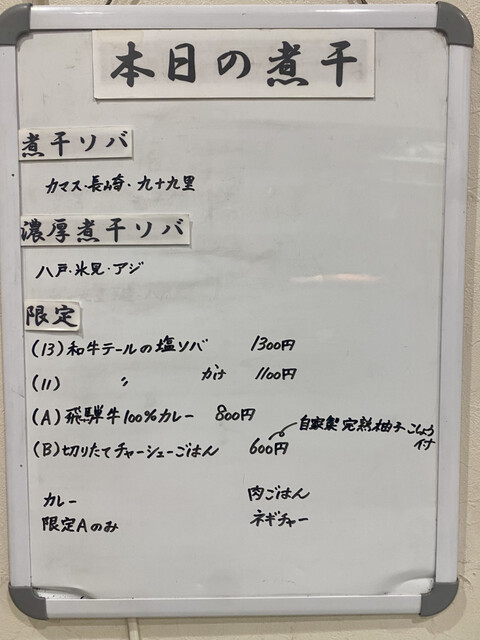 本日の煮干
煮干ソバ
カマス・長崎・九十九里
濃厚煮干ソバ
八戸・氷見・アジ
限定
(13)和牛テールの塩ソバ 1300円
(11) 〃 かけ 1100円
(A)飛騨牛100%カレー 800円
自家製完熟柚子こしょう
(B)切りたてチャーシューごはん 600円 イナ
カレー 肉ごはん
限定Aのみ ネギチャー